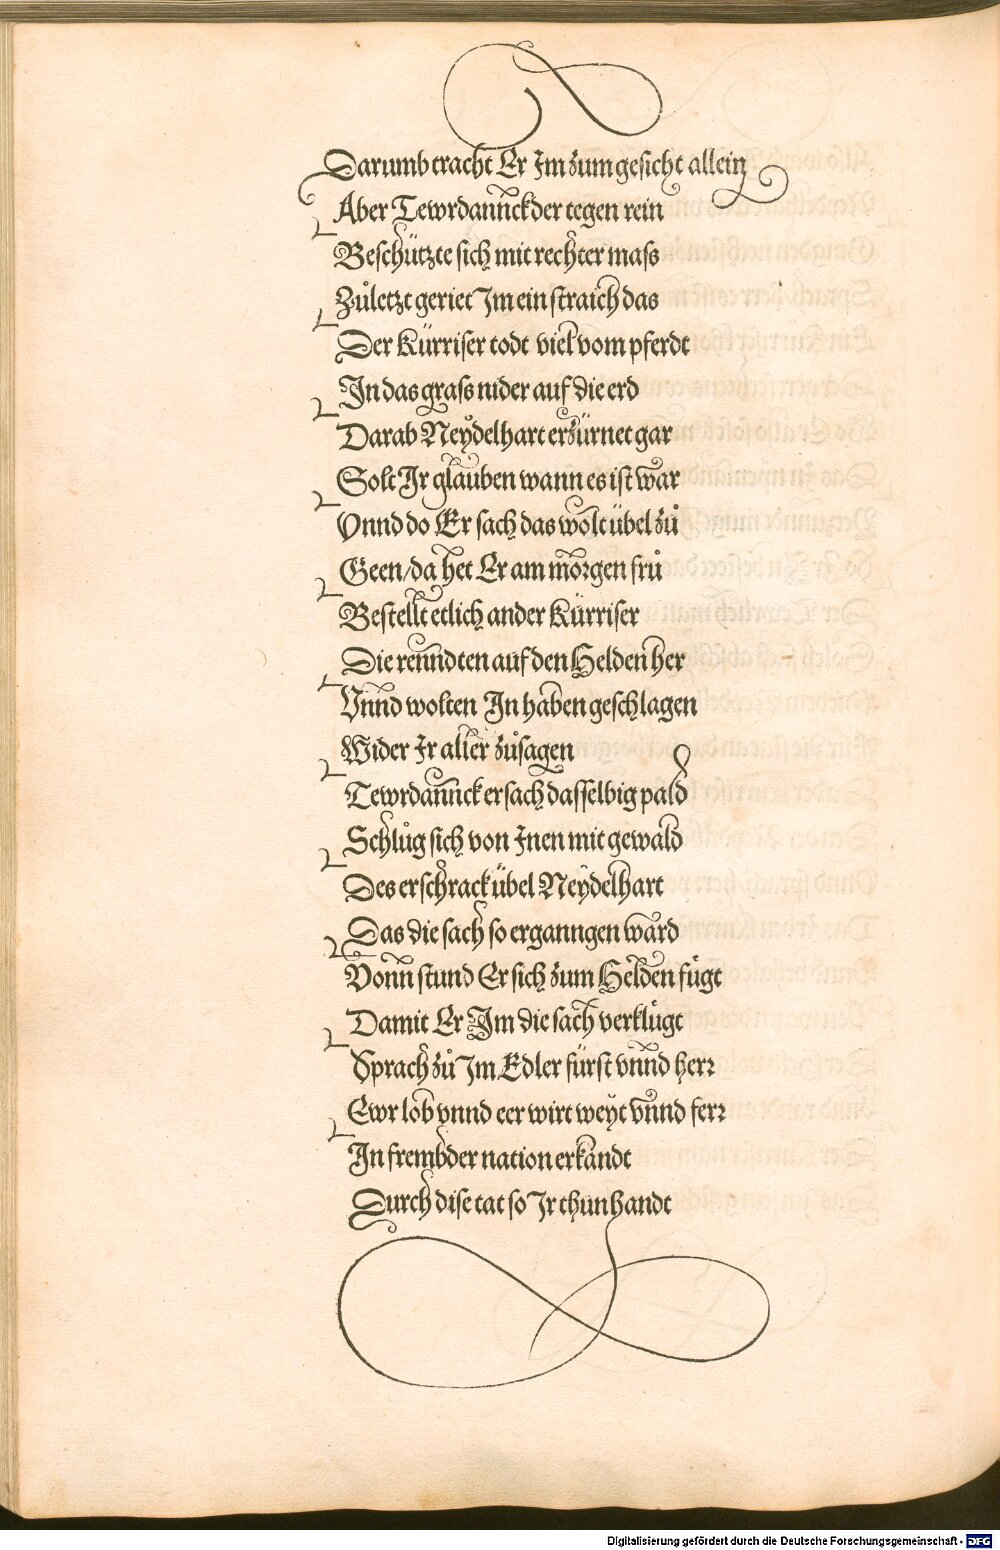 Darumb tracht Er Im zum gesicht allein
Aber Tewrdannckder tegen rein
Beschützte sich mit rechter mass
Zůletzt geriet Im ein straich das
Der Kürriser todt viel vom pferdt
In das grass nider auf die erd
Darab Neydelhart erzürnet gar
Solt Ir glauben wann es ist war
Vnnd do Er sach das wolt übel zů
Geen/da het Er am morgen frů
Bestellt etlich ander Kürriser
Die renndten auf den Helden her
Vnnd wolten In haben geschlagen
Wider Ir aller zůsagen
Tewrdannck ersach dasselbig pald
Schlůg sich von Inen mit gewald
Des erschrack übel Neydelhart
Das die sach so erganngen ward
Vonn stund Er sich zum Helden fügt
Damit Er Im die sach verklügt
Sprach zů Im Edler fürst vnnd herr
Ewr lob vnnd eer wirt weyt vnnd ferr
In frembder nation erkandt
Durch dise tat so Ir thun handt
Digitalisierung gefördert durch die Deutsche Forschungsgemeinschaft - DFG